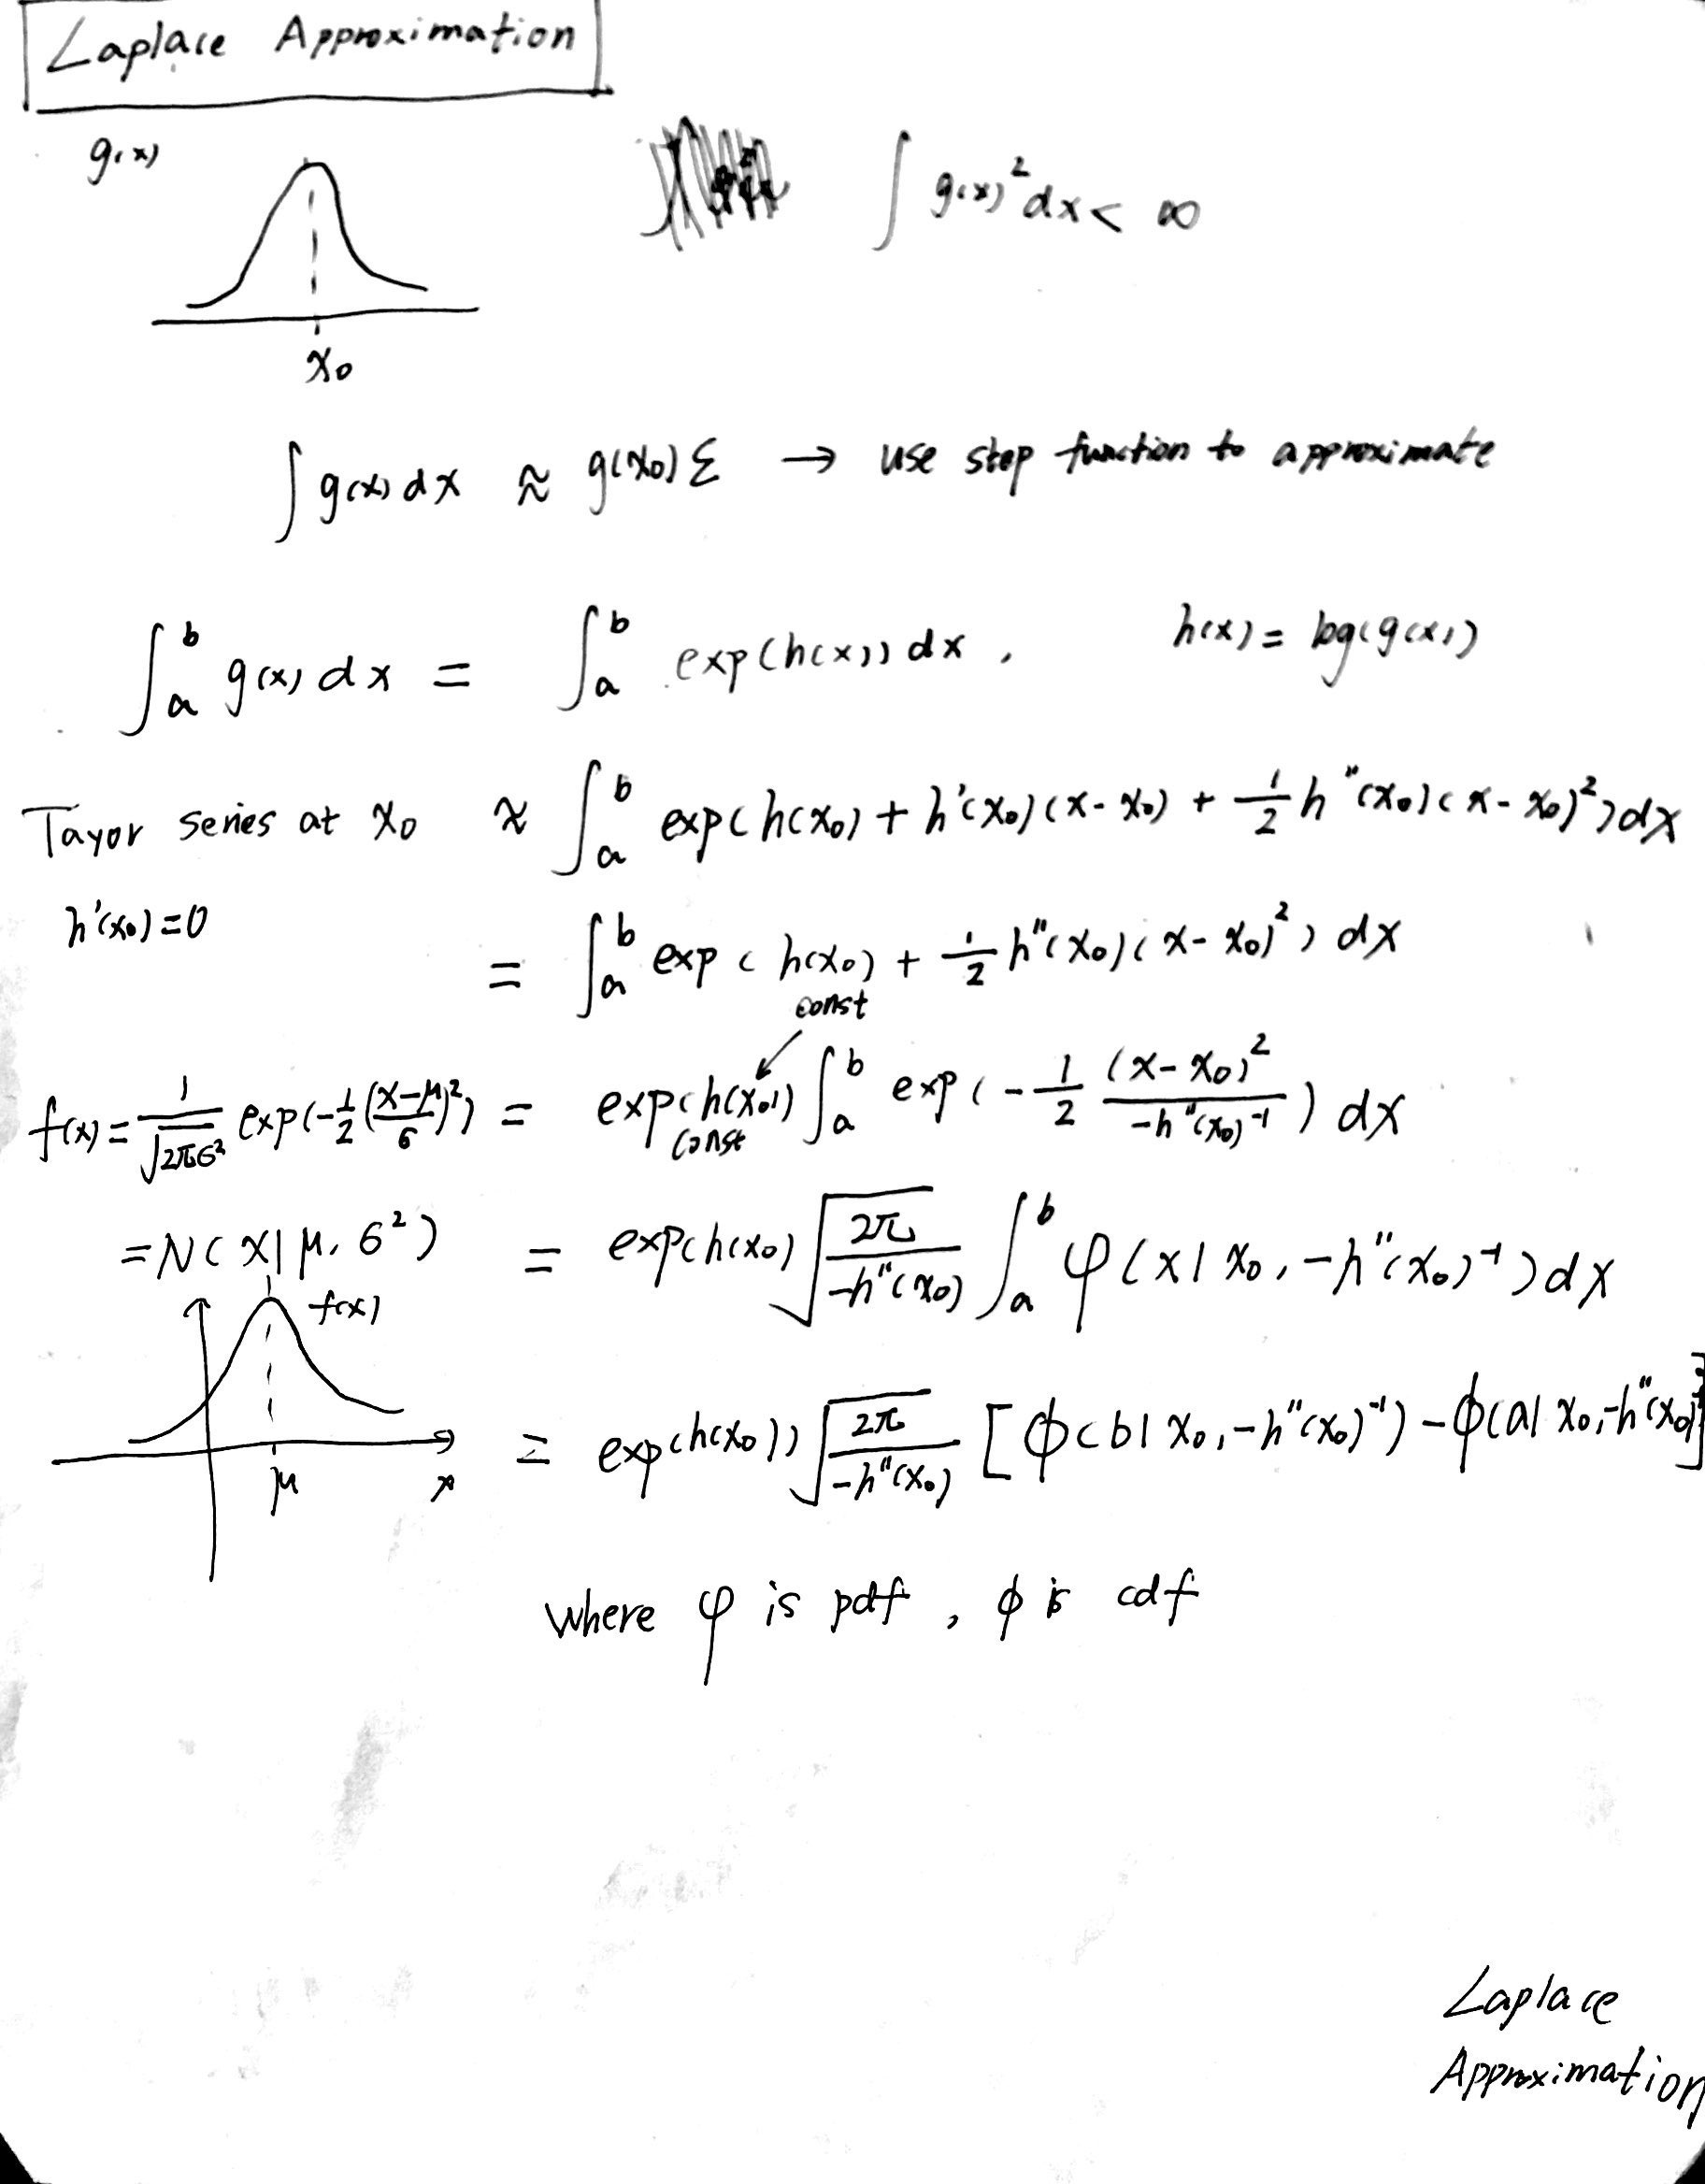 Laplace Approximation
g(x)
∫ g(x)² dx < ∞
x₀
∫ g(x) dx ≈ g(x₀) ε → use step function to approximate
∫ₐᵇ g(x) dx = ∫ₐᵇ exp(h(x)) dx , h(x) = log(g(x))
Tayor series at x₀ ≈ ∫ₐᵇ exp(h(x₀) + h'(x₀)(x-x₀) + 1/2 h''(x₀)(x-x₀)²) dx
h'(x₀)=0
= ∫ₐᵇ exp(h(x₀) + 1/2 h''(x₀)(x-x₀)²) dx
const
f(x) = 1/√(2πσ²) exp(-1/2 ((x-μ)/σ)²) = exp(h(x₀)) ∫ₐᵇ exp(-1/2 (x-x₀)²/(-h''(x₀)⁻¹)) dx
const
= N(x|μ, σ²) = exp(h(x₀) √(2π/(-h''(x₀))) ∫ₐᵇ φ(x|x₀, -h''(x₀)⁻¹) dx
f(x)
= exp(h(x₀)) √(2π/(-h''(x₀))) [ϕ(b|x₀, -h''(x₀)⁻¹) - ϕ(a|x₀, -h''(x₀)]
μ x
where φ is pdf , ϕ is cdf
Laplace
Approximation